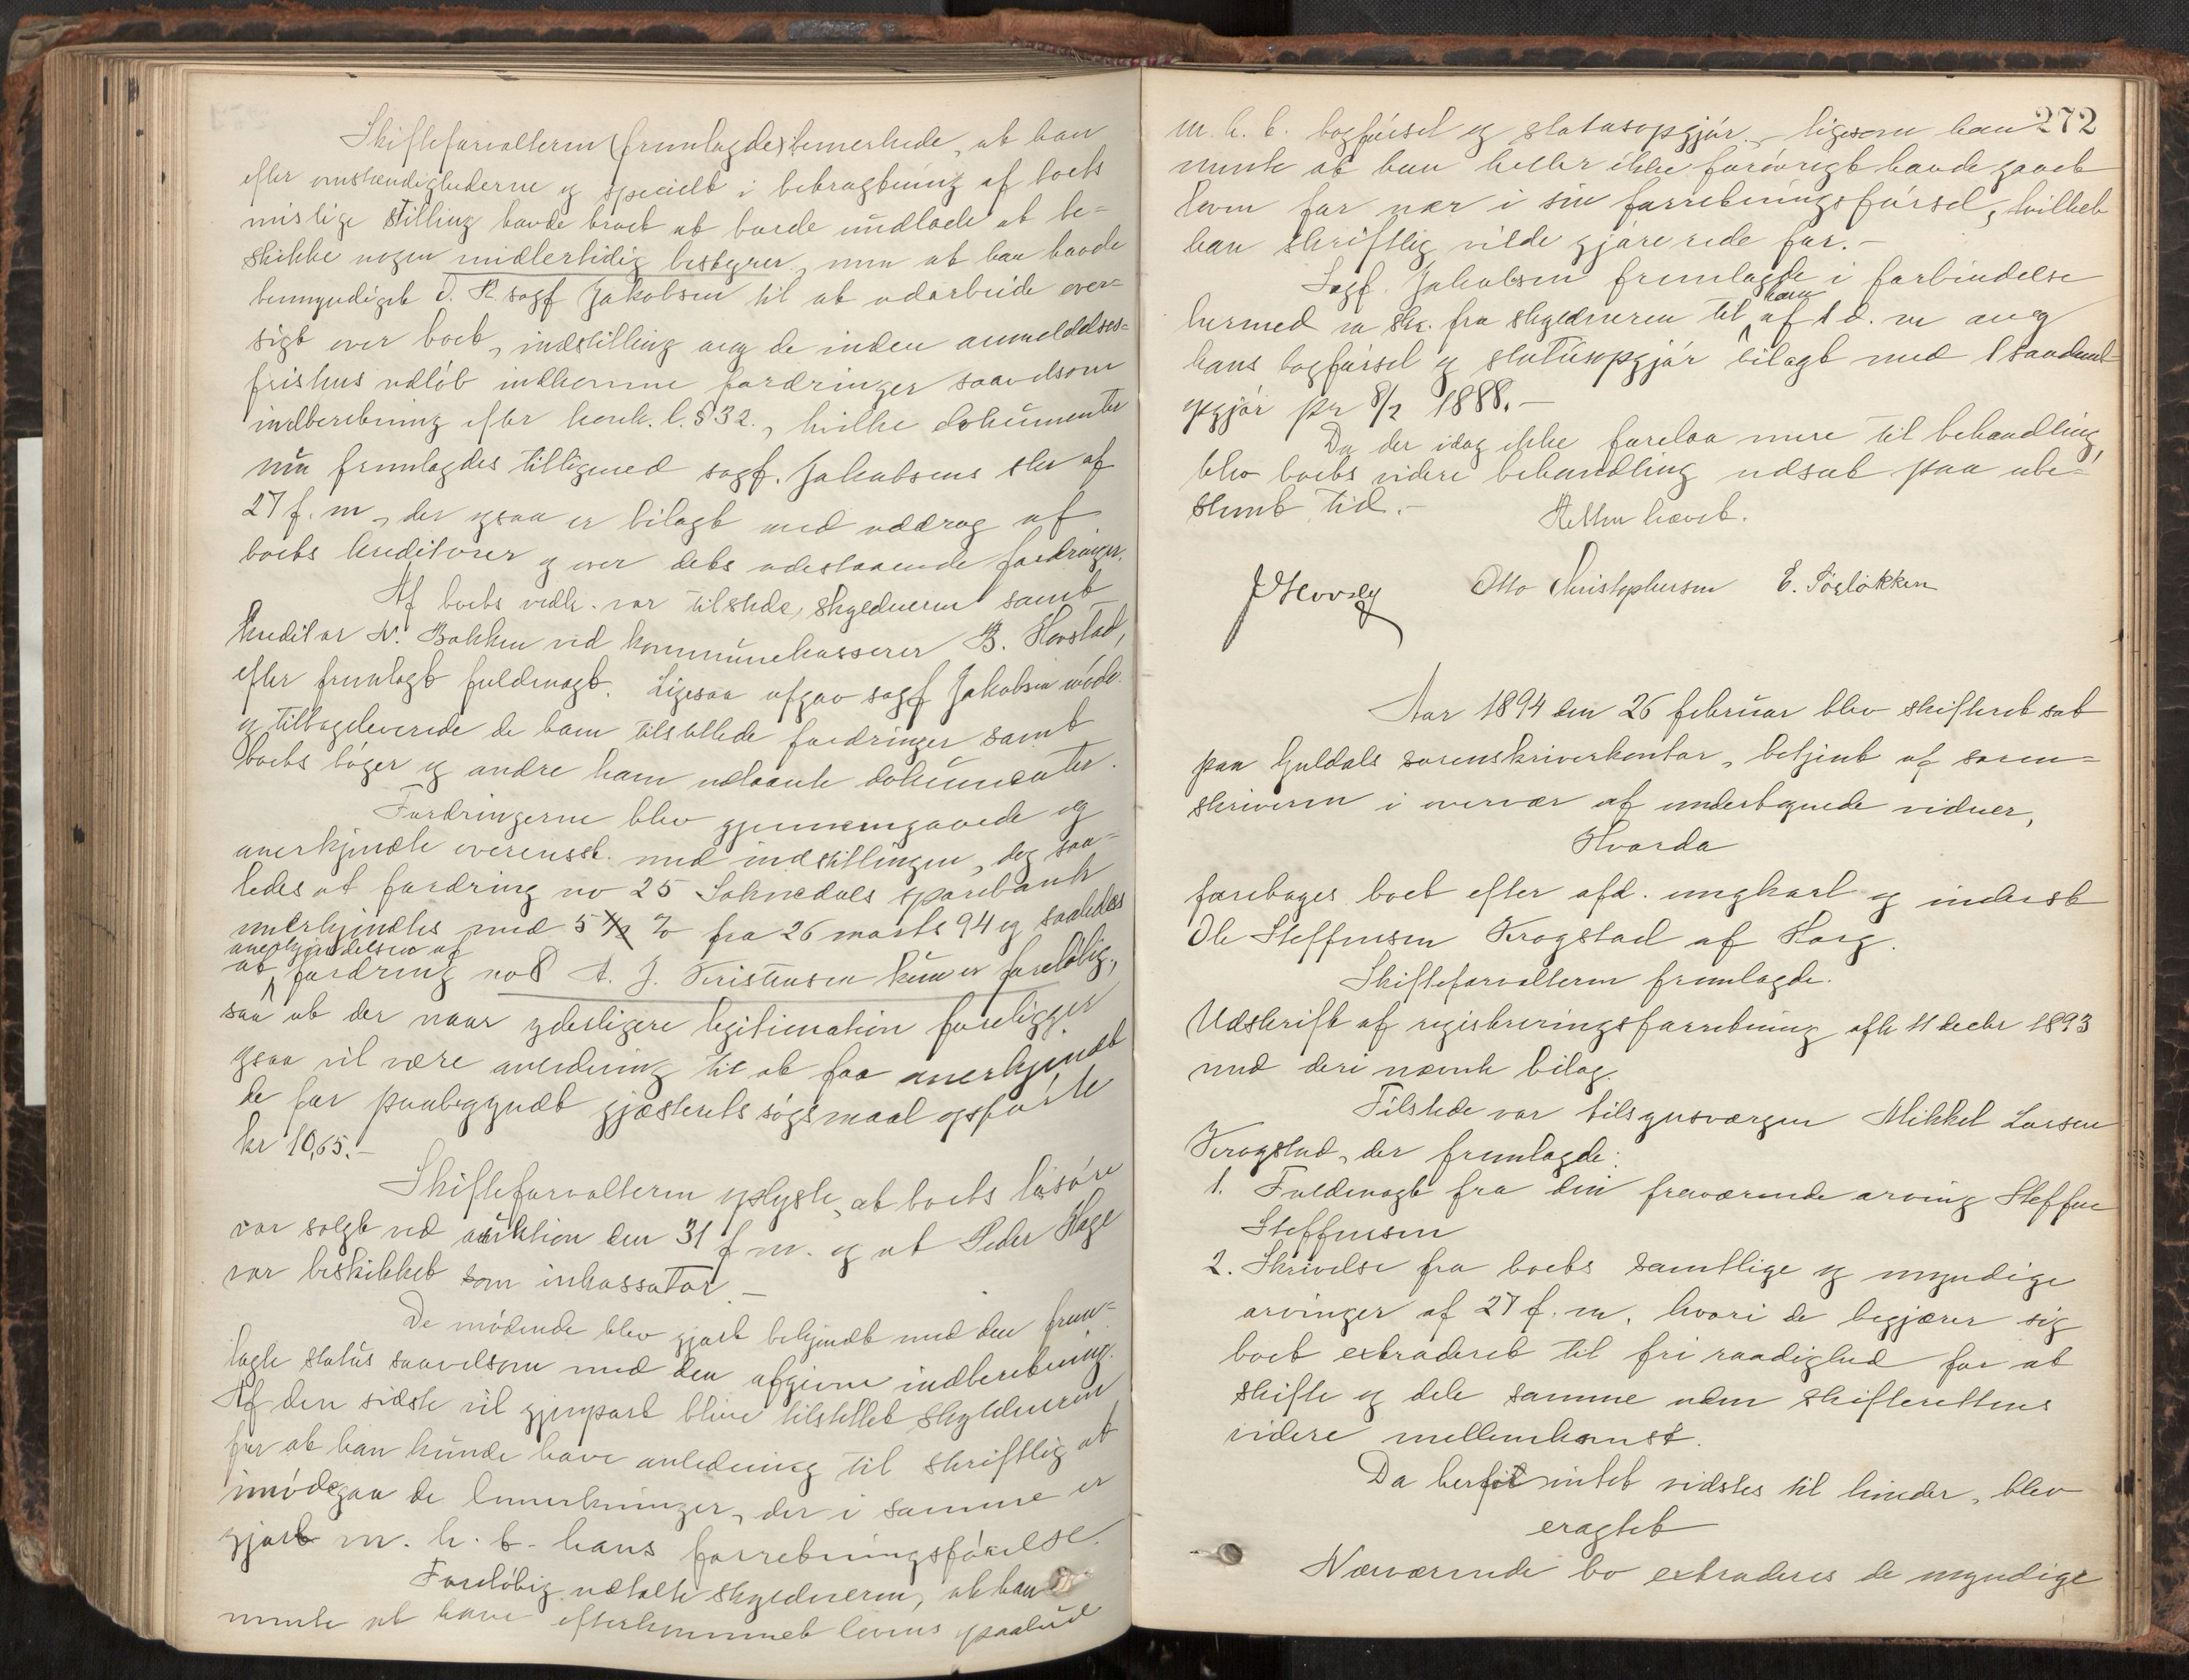 Skifteforvalteren (fremlagde) bemerkede, at han
efter omstændighederne og specielt i betragtning af boets
mislige stilling havde troet at burde undlade at be=
skikke nogen midlertidig bestyrer, men at han havde
bemyndiget O. R. sagf Jakobsen til at udarbeide over=
sigt over boet, indstilling ang de inden anmeldelses=
fristens udløb indkomne fordringer saavelsom
indberetning efter konk. l. § 32., hvilke dokumenter
nu fremlagdes tilligemed sagf. Jakobsens skr af
27 f. m, der ogsaa er bilagt med uddrag af
boets kreditorer og over dets udestaaende fordringer.
Af boets vedk. var tilstede, skyldneren samt
kreditor N. Bakken ved kommunekasserer B. Hovstad,
efter fremlagt fuldmagt. Ligesaa afgav sagf Jakobsen møde
og tilbageleverede de ham tilstillede fordringer samt
boets bøger og andre ham udlaante dokumenter.
Fordringerne blev gjennemgaaede og
anerkjendte overensst. med indstillingen, dog saa=
ledes at fordring no 25 Soknedals sparebank
anerkjendtes med 5 ½ % fra 26 marts 94 og saaledes
anerkjendelsen af
at fordring no 8 A. J. Kristensen kun er foreløbig,
saa at der naar yderligere legitimation foreligger
ogsaa vil være anledning til at faa anerkjendt
de før paabegyndt gjæsterets søgsmaal opførte
kr 10,65.-
Skifteforvalteren oplyste, at boets løsøre
var solgt ved auktion den 31 f m. og at Peder Hage
var beskikket som inkassator.-
De mødende blev gjort bekjendt med den frem=
lagte status saavelsom med den afgivne indberetning.
Af den sidste vil gjenpart blive tilstillet skyldneren
for at han kunde have anledning til skriftlig at
imødegaa de bemerkninger, der i samme er
gjort m. h. t. hans forretningsførelse.
Foreløbig udtalte skyldneren, at han
mente at have efterkommet lovens paabud
272
m. h. t. bogførsel og statusopgjør, ligesom han
mente at han heller ikke forøvrigt havde gaaet
loven for nær i sin forretningsførsel, hvilket
han skriftlig vilde gjøre rede for.-
Sagf. Jakobsen fremlagde i forbindelse
ham
hermed en skr. fra skyldneren til af 1 d. m ang
hans bogførsel og statusopgjør bilagt med 1 saadant
opgjør pr 8/2 1888.-
Da der idag ikke forelaa mere til behandling,
blev boets videre behandling udsat paa ube=
stemt tid.-
Retten hævet.
Otto Christophersen E. Søsløkken
Aar 1894 den 26 februar blev skifteret sat
paa Guldals sorenskriverkontor, betjent af soren=
skriveren i overvær af undertegnede vidner,
Hvorda
foretoges boet efter afd. ungkarl og inderst
Ole Steffensen Krogstad af Horg.
Skifteforvalteren fremlagde.
Udskrift af registreringsforretning afh 11 decbr 1893
med deri nævnte bilag.
Tilstede var tilsynsværgen Mikkel Larsen
Krogstad, der fremlagde:
1. Fuldmagt fra den fraværende arving Steffen
Steffensen
2. Skrivelse fra boets samtlige og myndige
arvinger af 27 f. m. hvori de begjærer sig
boet extraderet til fri raadighed for at
skifte og dele samme uden skifterettens
videre mellemkomst.
Da hertil intet vidstes til hinder, blev
eragtet
Nærværende bo extraderes de myndige